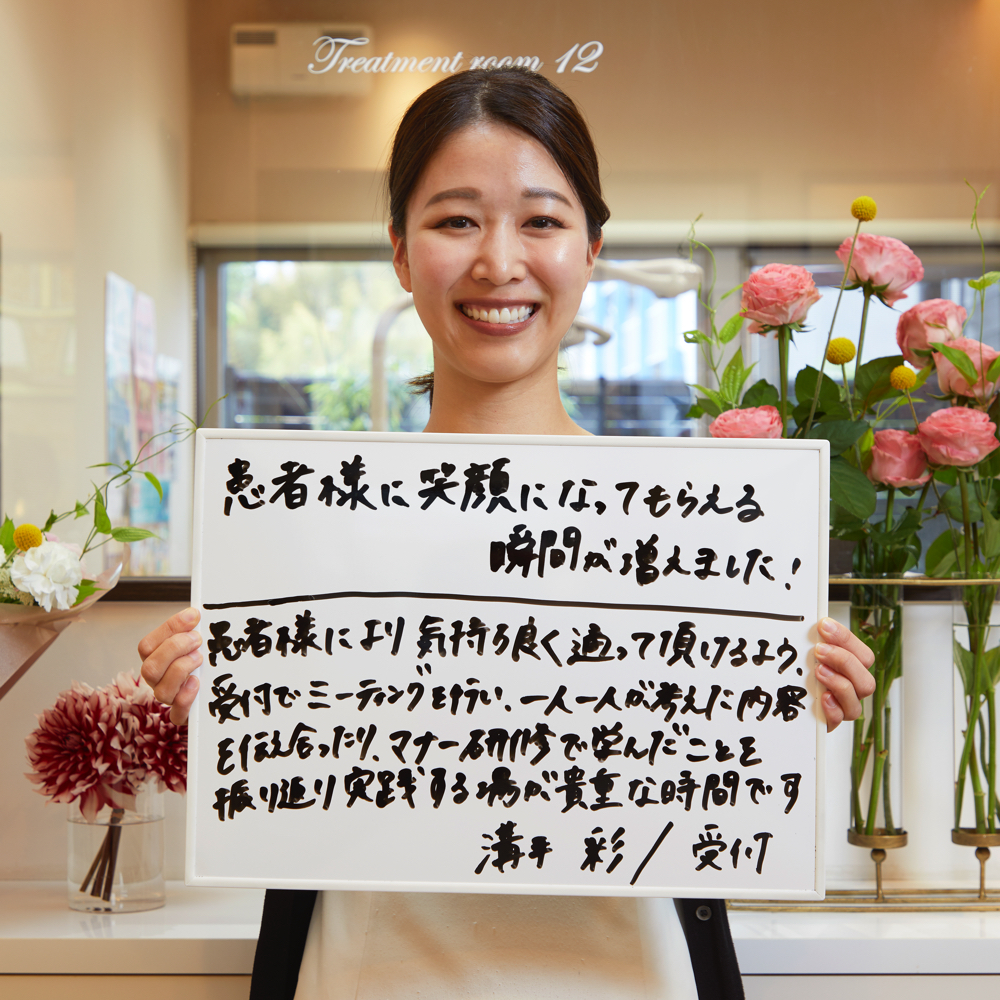 Treatment room 12
患者様に笑顔になってもらえる
瞬間が増えました!
患者様により気持ち良く通って頂けるよう、
受付でミーティングを行い、一人一人が考えた内容
を伝え合ったり、マナー研修で学んだことを
振り返り実践する場が貴重な時間です
溝平 彩/受付